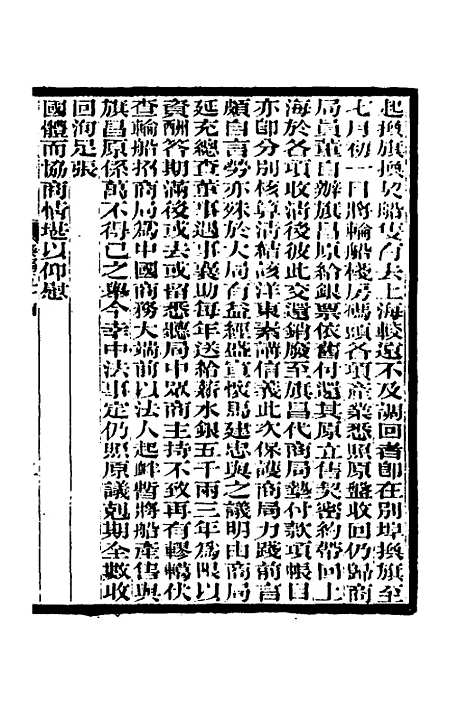 起換旗換契船隻有去上海較遠不及調回者即在別埠換旗至
七月初一日將輪船棧房碼頭各項產業悉照原盤收回仍歸商
局員董自辦旗昌原給銀票依舊付還其原立售契密約帶回上
海於各項收清後彼此交還銷廢至旗昌代商局墊付款項帳目
亦即分別核算清結該洋東素講信義此次保護商局力踐前言
頗自言勞亦殊於大局有益經盛宣懷馬建忠與之議明由商局
延充總查董事遇事襄助每年送給薪水銀五千兩三年為限以
資酬答期滿後或去或留悉聽局中眾商主持不致再有轇轕伏
查輪船招商局為中國商務大端前以法人起衅暫將船產售與
旗昌原係萬不得已之舉今幸中法事定仍照原議剋期全數收
回洵足張
國體而協商情堪以仰慰